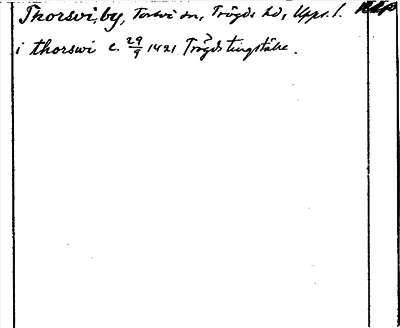 Thorsvi, by, Torsvi sn, Trögds hd, Upps. l.
i thorswi c. 29/9 1421 Trögds tingställe.